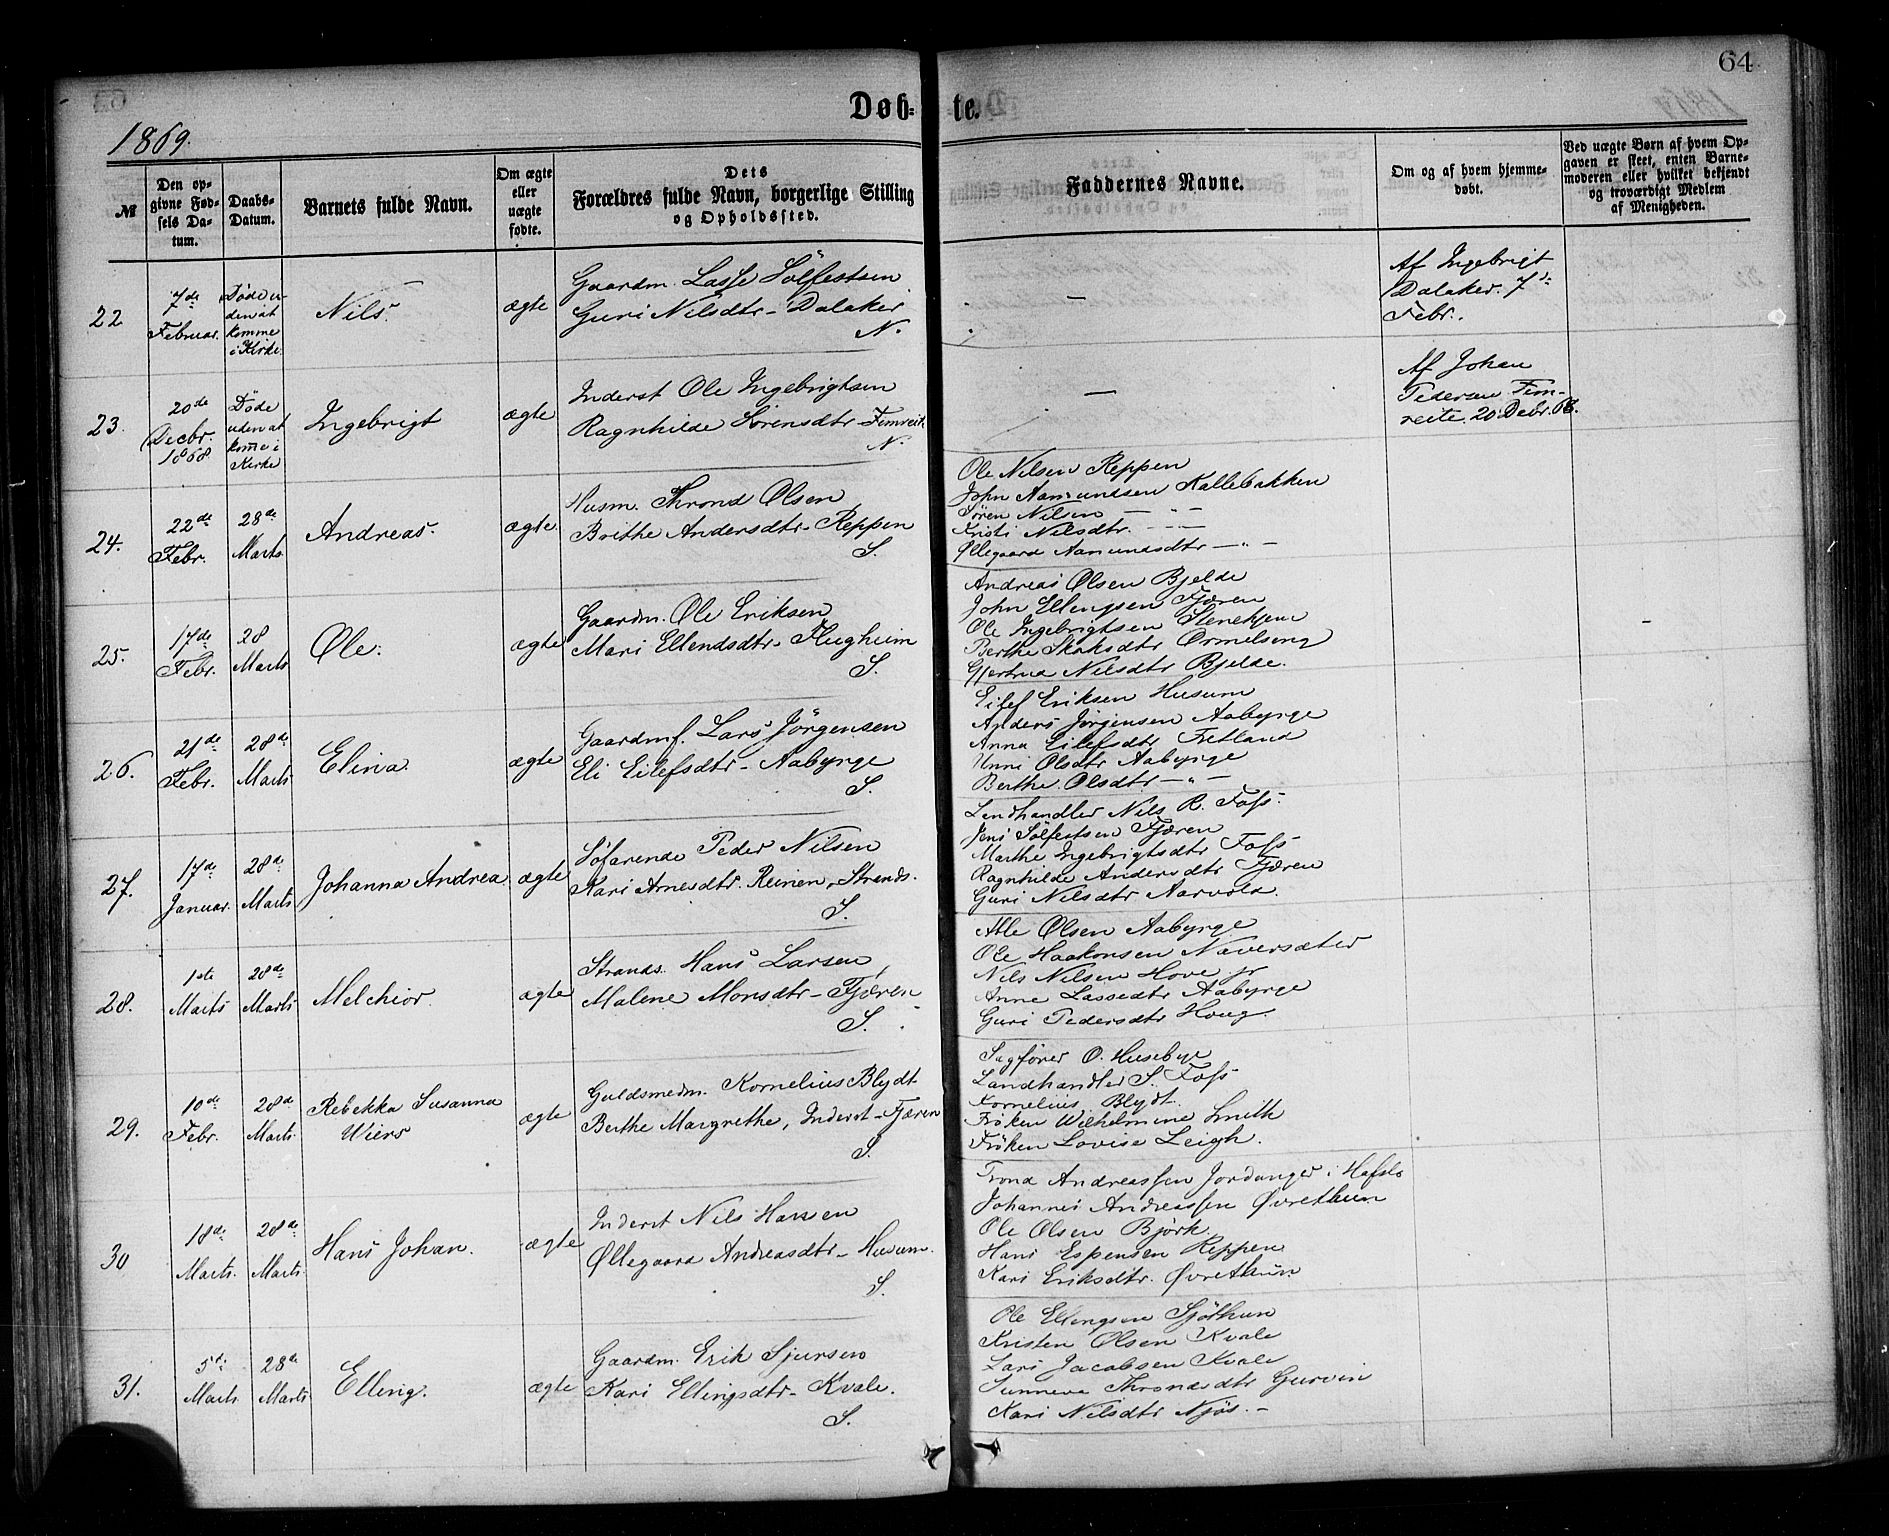 64
Døb-te.
1869.
№
Den opgivne Fødsels Datum.
Daabs-Datum.
Barnets fulde Navn.
Om ægte eller uægte fødte.
Dets Forældres fulde Navn, borgerlige Stilling og Opholdssted.
Faddernes Navne.
Om og af hvem hjemmedøbt.
Ved uægte Børn af hvem Opgaven er skeet, enten Barnemoderen eller hvilket bekjendt og troværdigt Medlem af Menigheden.
22
7de Februar.
Døde uden at komme i Kirke.
Nils.
ægte
Gaardm. Lasse Sølfestsen
Guri Nilsdtr - Dalaker
N.
—
Af Ingebrigt
Dalaker. 7de
Febr.
23.
20de Decbr. 1868
Døde uden at kome i Kirke
Ingebrigt
ægte
Inderst Ole Ingebrigtsen
Ragnhilde Sørensdtr - Fimreit.
N.
—
Af Johan
Pedersen Fim-
reite. 20 Debr. 68.
24.
22de Febr.
28de Marts
Andreas.
ægte.
Husm. Thrond Olsen
Brithe Andersdtr - Reppen
S.
Ole Nilsen Reppen
John Aamundsen Kallebakken
Søren Nilsen — " —
Kristi Nilsdtr. — " —
Ollegaard Aamundsdtr — " —
25.
17de Febr.
28 Marts
Ole.
ægte
Gaardm. Ole Eriksen
Mari Ellendsdtr - Flugheim
S.
Andreas Olsen Bjelde
John Ellingsen Fjæren
Ole Ingebrigtsen Stenehjem
Berthe Skaksdtr Ormelseng
Gjertrud Nilsdtr Bjelde.
26.
21de Febr.
28de Marts
Elina
ægte
Gaardmf. Lars Jörgensen
Eli Eilefsdtr - Aabyrge
S.
Eilef Eriksen Husum
Anders Jørgensen Aabyrge
Anna Eilefsdtr Fretland
Unni Olsdtr Aabyrge
Berthe Olsdtr — " —
27.
17de Januar.
28de Marts
Johanna Andrea
ægte
Søfarende Peder Nilsen
Kari Arnesdtr. Reinen, Strands.
S.
Landhandler Nils R. Foss.
Jens Sølfestsen Fjæren
Marthe Ingebrigtsdtr Foss
Ragnhilde Andersdtr Fjæren
Guri Nilsdtr Aarvold.
28.
1ste Marts
28de Marts
Melchior.
ægte
Strands. Hans Larsen,
Malene Monsdtr - Fjæren
S.
Atle Olsen Aabyrge
Ole Haakonsen Naversæter
Nils Nilsen Hove jr
Anne Lassedtr Aabyrge
Guri Pedersdtr Houg.
29.
10de Febr.
28de Marts
Rebekka Susanna
Wiers
ægte
Guldsmedm. Kornelius Blydt
Berthe Margrethe, Inderst - Fjæren
S.
Sagfører O. Husebye
Landhandler S. Foss
Kornelius Blydt.
Frøken Wilhelmine Smith
Frøken Lovise Leigh.
30
18de Marts.
28de Marts.
Hans Johan.
ægte
Inderst Nils Hansen
Øllegaard Andreasdtr - Husum.
S.
Trond Andreassen Jordanger i Hafslo
Johannes Andreassen Øvrethun
Ole Olsen Björk
Hans Espensen Reppen
Kari Eriksdtr. Øvrethun
31.
5de Marts
28de Marts
Elling.
ægte
Gaardm. Erik Sjursen
Kari Ellingsdtr - Kvale.
S.
Ole Ellingsen Sjøthun
Kristen Olsen Kvale
Lars Jacobsen Kvale
Sunneva Throndsdtr Gurvin
Kari Nilsdtr Njøs. —